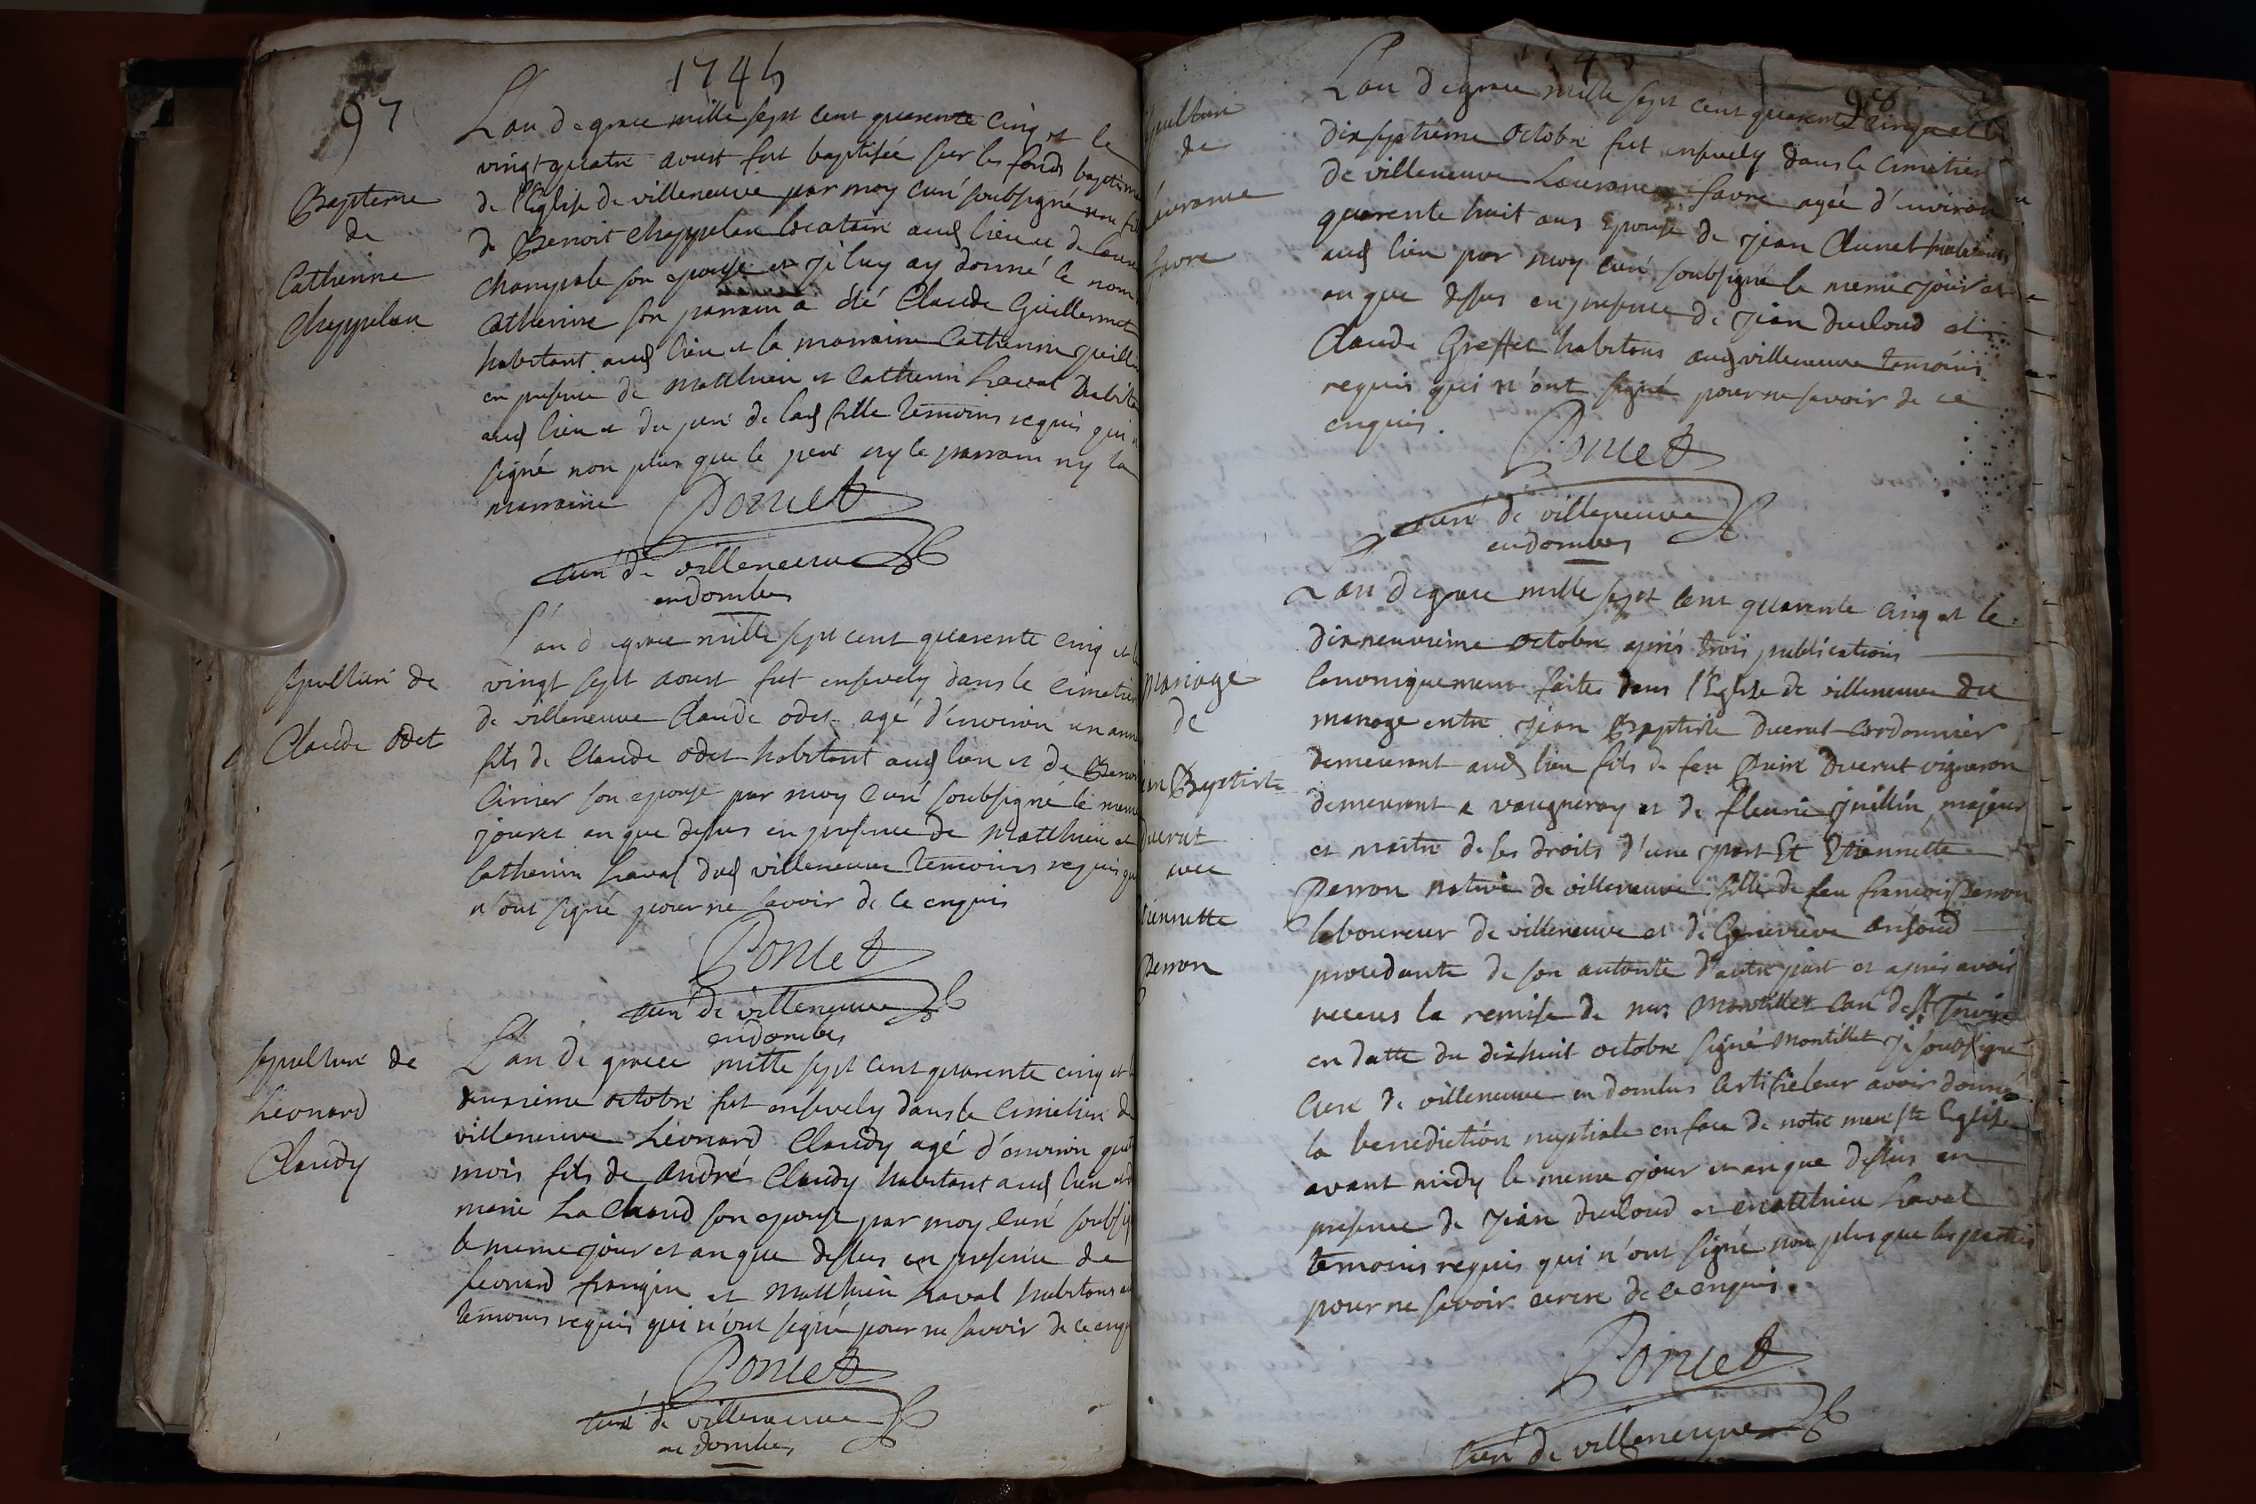 1745
97
Bapteme
de
Catherine
Cheppelan
L'an de grace mille sept cent quarente cinq et le
vingt quatre aoust fut baptisée sur les fonds baptisma
de l'Eglise de villeneuve par moy curé soubsigné une fil
de Benoit cheppelan locataire aud lieu et de
champale son epouse et je luy ay donné le nom
catherine son parrain a été Claude Guillermet
habitant aud lieu et la marraine Catherine
en presence de Matthieu et Catherin Laval
aud lieu et du peré de lad fille temoins requis qui
signé non plus que le peré ny le parrain ny la
marraine Poncet
curé de villeneuve
en dombes
sepulture de
Claude Odet
L'an de grace mille sept cent quarente cinq et
vingt sept aoust fut ensevely dans le cimetier
de villeneuve Claude odet agé d'environ un ann
fils de Claude odet habitant aud lieu et de
Cirier son epouse par moy curé soubsigné le meme
jour et an que dessus en presence de Matthieu et
Catherin Laval dud villeneuve temoins requis qui
n'ont signé pour ne savoir de ce enquis
Poncet
curé de villeneuve
en dombes
sepulture de
Léonard
Claudy
L'an de grace mille sept cent quarente cinq et
deuxieme octobre fut ensevely dans le cimetiere de
villeneuve Léonard Claudy agé d'environ
mois fils de André Claudy habitant aud lieu
marie La Chand son epouse par moy curé soubsig
le meme jour et an que dessus en presence de
leonard frangin et Matthieu Laval habitans
temoins requis qui n'ont signé pour ne savoir de ce enq
Poncet
curé de villeneuve
en dombes
98
sepulture
de
favre
L'an de grace mille sept cent quarente cinq et le
dix septiéme octobre fut ensevely dans le cimetier
de villeneuve favre agée d'environ
quarente huit ans epouse de jean Clunet
aud lieu par moy curé soubsigné le meme jour et
an que dessus en presence de jean ducloud et
Claude Greffet habitans aud villeneuve temoins
requis qui n'ont signé pour ne savoir de ce
enquis.
Poncet
curé de villeneuve
en dombes
Mariage
de
Baptiste
ducrut
avec
Perron
L'an de grace mille sept cent quarente cinq et le
dixneuvieme octobre aprés trois publications
canoniquement faites dans l'Eglise de villeneuve du
mariage entre jean Baptiste ducrut cordonnier
demeurant aud lieu fils de feu ducrut vigneron
demeurant a vaugneray et de fleurie juillin majeur
et maitre de ses droits d'une part Et Etiennette
Perron native de villeneuve fille de feu françois Perron
laboureur de villeneuve et de Genevieve
procedante de son autorité d'autre part et aprés avoir
receus la remise de mr Montillet curé de St
en datte du dixhuit octobre signé Montillet je soubsigné
curé de villeneuve en dombes certifie leur avoir donné
la benediction nuptiale en face de notre mere ste Eglise
avant midy le meme jour et an que dessus en
presence de jean ducloud et Matthieu Laval
temoins requis qui n'ont signé non plus que les parties
pour ne savoir de ce enquis.
Poncet
curé de villeneuve